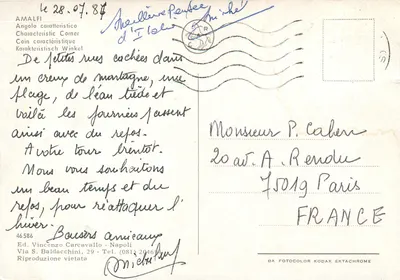 le 28.07.87
AMALFI
Angolo caratteristico
Characteristic Corner
Coin caractéristique
Karakteristisch Winkel
Meilleure Pensée
d'Italie Michel
De petites rues cachées dans
un creux de montagne, une
plage, de l'eau tiède et
voilà les journées passent
ainsi avec du repos.
A votre tour bientôt.
Nous vous souhaitons
un beau temps et du
repos, pour réattaquer l'
hiver.
Baisers amicaux
Monsieur P. Cahen
20 av. A. Rendu
75019 Paris
FRANCE
46586
Ed. Vincenzo Carcavallo - Napoli
Via S. Baldacchini, 29 - Tel. (081)
Riproduzione vietata
DA FOTOCOLOR KODAK EKTACHROME